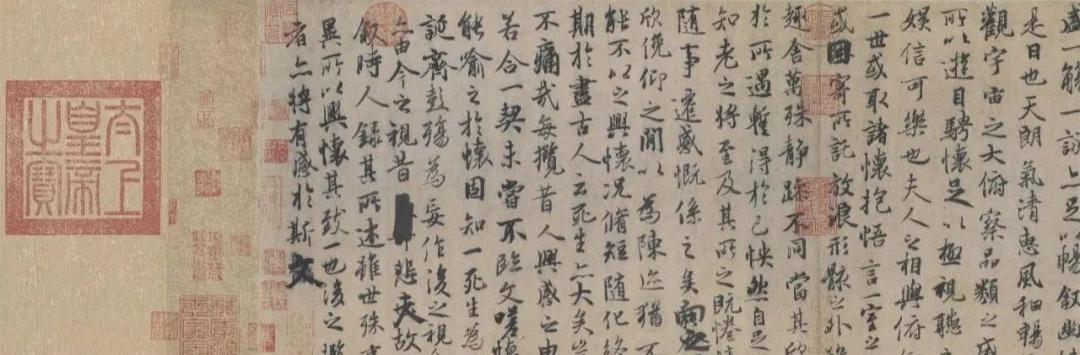 盛一觴一詠亦足以暢叙幽
是日也天朗氣清惠風和暢
觀宇宙之大俯察品類之盛
所以遊目騁懷足以極視聽
娛信可樂也夫人之相與俯
一世或取諸懷抱悟言一室之
或因寄所託放浪形骸之外雖
趣舍萬殊靜躁不同當其欣
於所遇暫得於己怏然自足
知老之將至及其所之既惓情
隨事遷感慨係之矣向之
欣俛仰之閒以為陳迹猶不
能不以之興懷況脩短隨化終
期於盡古人云死生亦大矣豈
不痛哉每攬昔人興感之由
若合一契未嘗不臨文嗟悼
能喻之於懷固知一死生為
誕齊彭殤為妄作後之視今
亦由今之視昔悲夫故
叙時人錄其所述雖世殊事
異所以興懷其致一也後之攬
者亦將有感於斯文
太上
皇帝
之寶